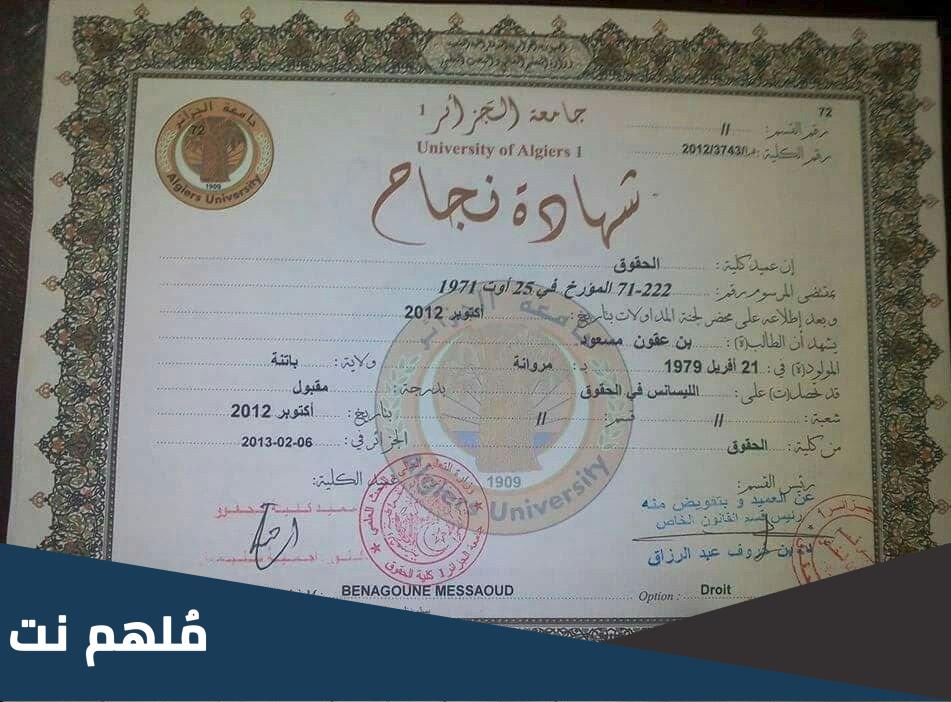 جامعة الجزائر 1
University of Algiers 1
72
رقم القسم: //
رقم الكلية: 2012/3743/
جامعة الجزائر
72
1909
Algiers University
شهادة نجاح
إن عميد كلية: الحقوق
بمقتضى المرسوم رقم: 71-222 المؤرخ في 25 أوت 1971
و بعد إطلاعه على محضر لجنة المداولات بتاريخ: أكتوبر 2012
يشهد أن الطالب(ة): بن عقون مسعود
المولود(ة) في: 21 أفريل 1979 بـ: مروانة ولاية: باتنة
قد تحصل(ت) على: الليسانس في الحقوق بدرجة: مقبول
شعبة: // قسم: // بتاريخ: أكتوبر 2012
من كلية: الحقوق الجزائر في: 2013-02-06
جامعة الجزائر
1909
Algiers University
رئيس القسم: عميد الكلية:
عن العميد و بتفويض منه
رئيس قسم القانون الخاص
عبد الرزاق
عميد كلية الحقوق
جامعة الجزائر 1 كلية الحقوق
BENAGOUNE MESSAOUD
Option : Droit
مُلهم نت